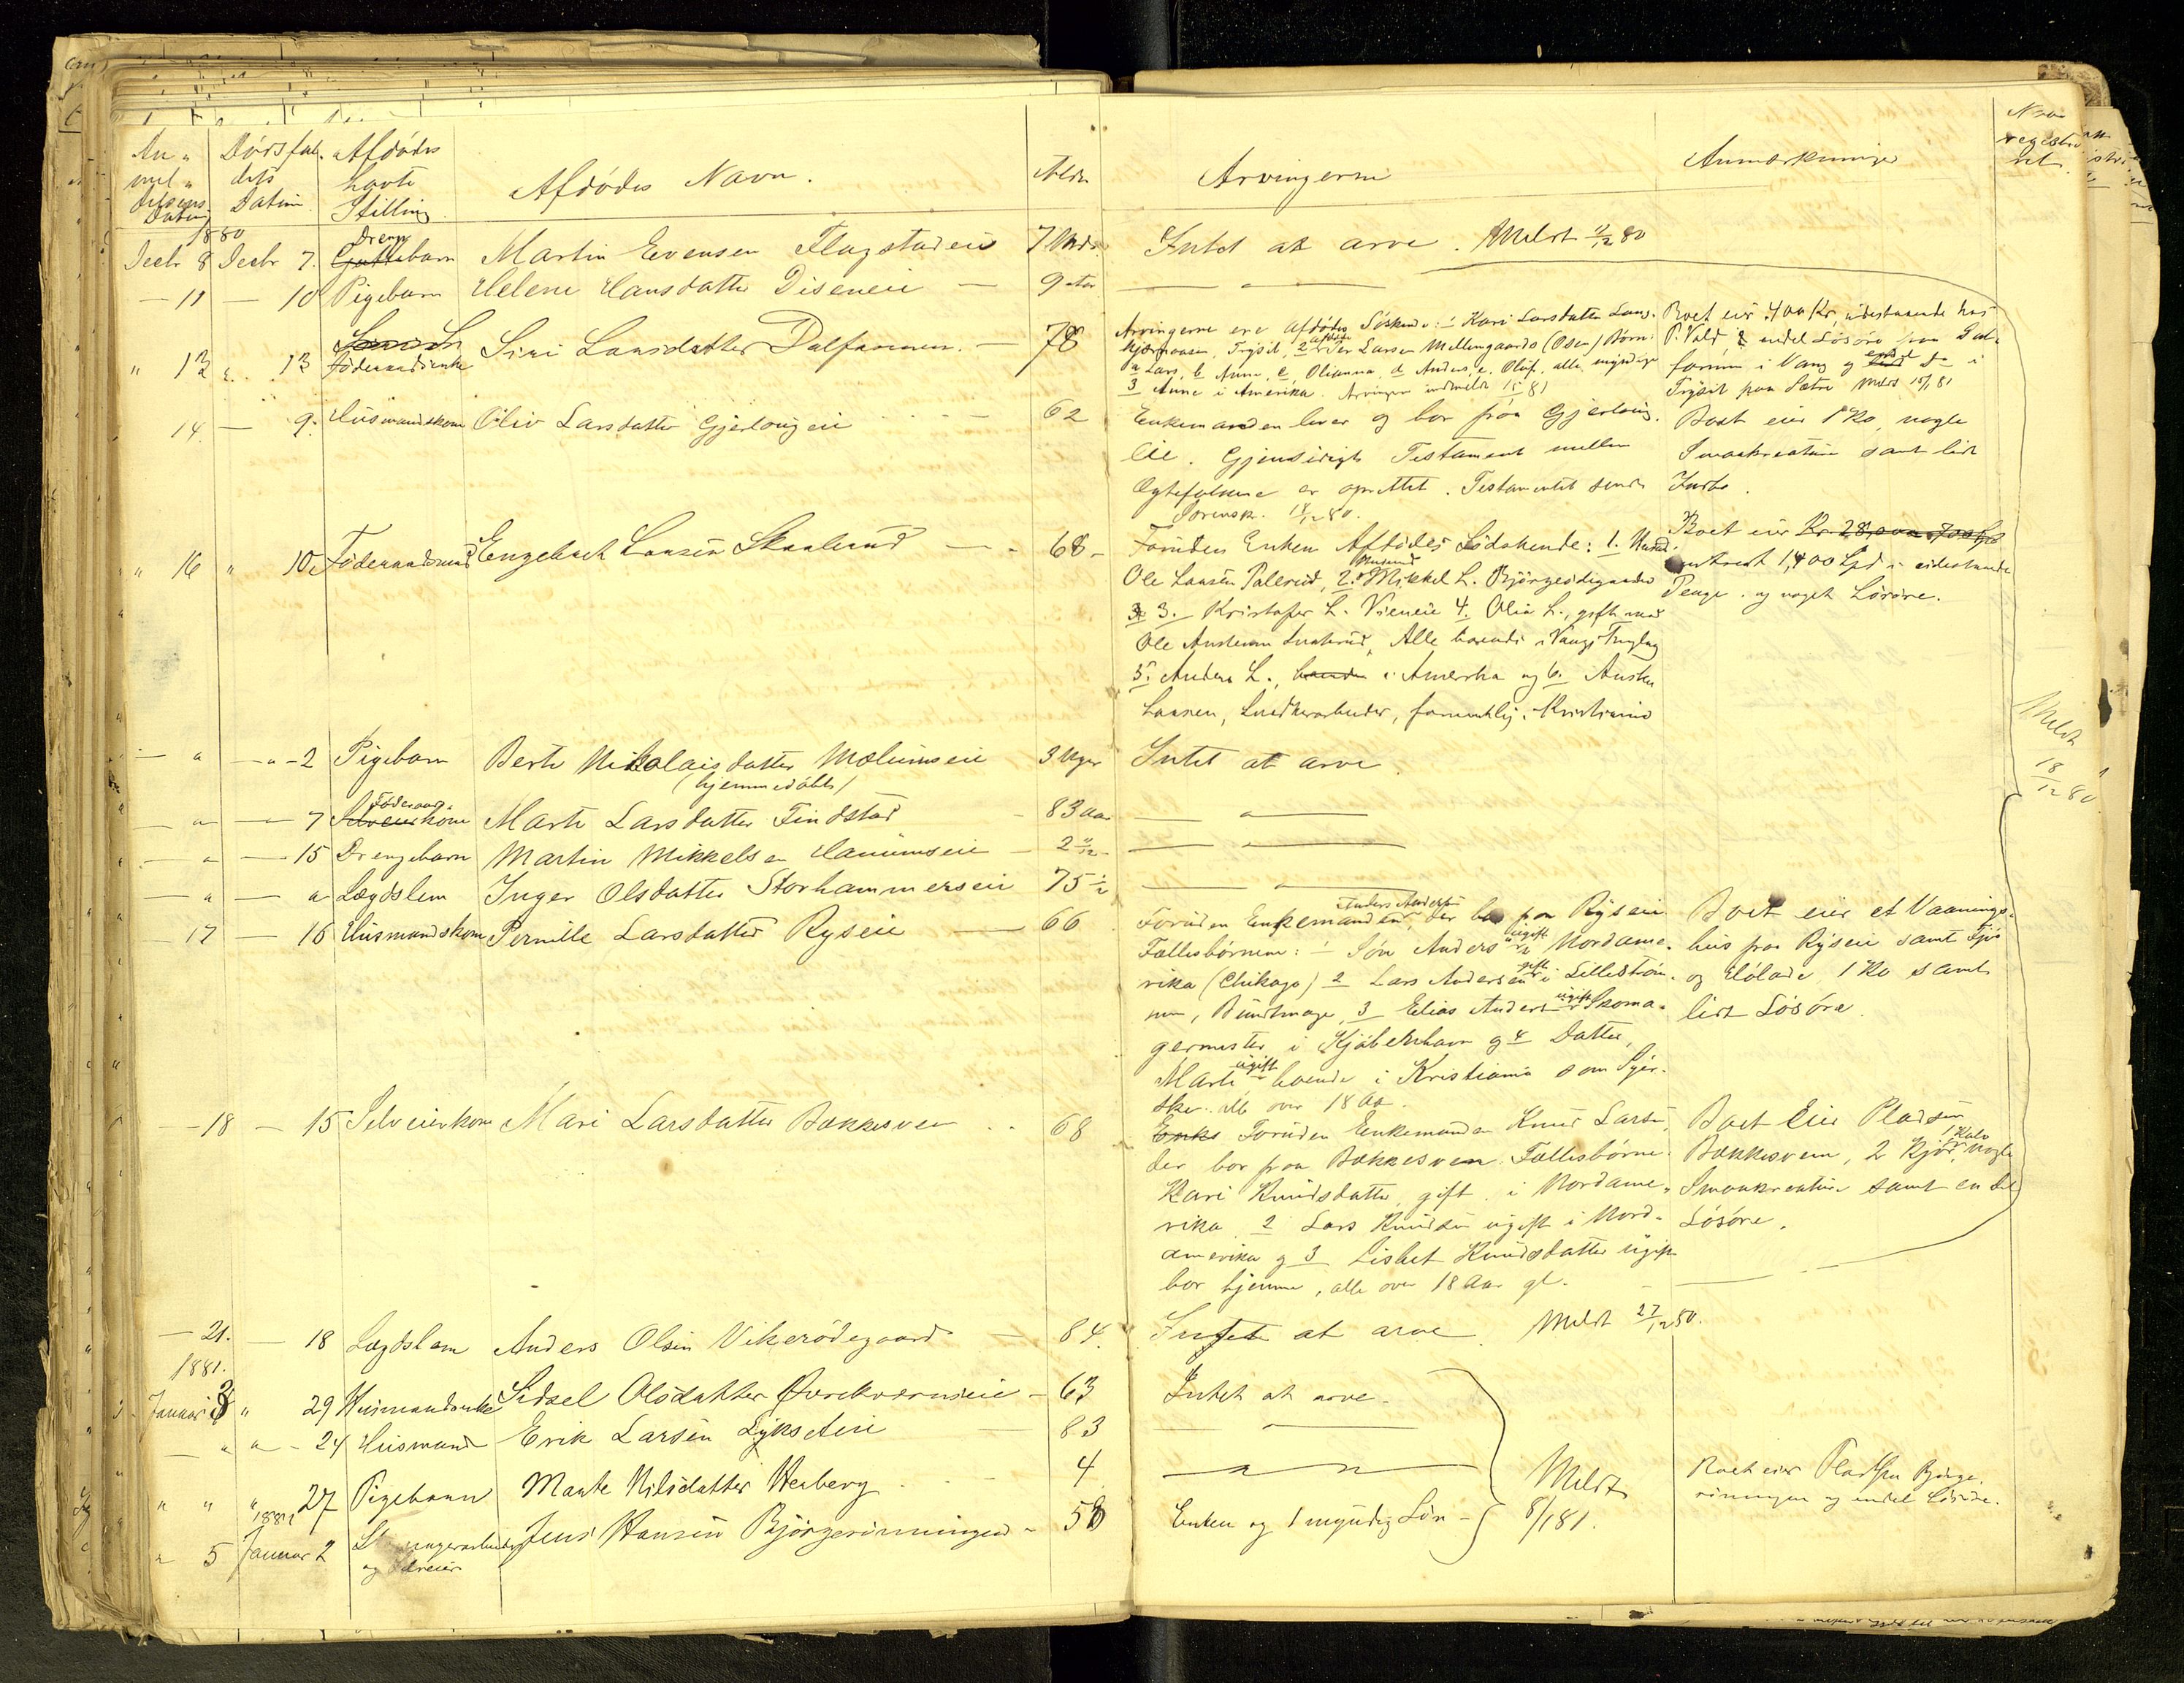 An- Dödsfal- Afdödes
mel- dets havte Afdödes Navn. Alder Arvingerne Anmærkninger
delsens Datum Stilling
Datum
1880
Decbr 8 Decbr 7. Drenge Guttebarn Martin Evensen Flagstadeie 7 Mdr. Intet at arve. Meldt 11/12 80
- 11 - 10 Pigebarn Helene Hansdatter Diseneie - 9 " - " -
" 13 " 13 Föderaadsenke Siri Larsdatter Dalfarmen. - 78
Arvingerne ere Afdödes Söskende: 1 Kari Larsdatter Lang-
Trysil, 2 afdöde Per Larsen Mellemgaards (Osen) Börn:
a Lars, b Anne, c Olianna, d Anders, e. Oluf, alle myndige
3 Anne i Amerika. Arvingerne indmeldt 15/1 81
Boet eier 400 Kr, udestaaende hos
P. Vold & endel Lösöre paa Dal-
farmen i Vang og endel do i
Trysil paa Sætre Meldt 15/1 81
14 - 9. Husmandskone Oliv Larsdatter Gjerlougeie - 62
Enkemanden lever og bor paa Gjerloug-
eie. Gjensidigt Testament mellem
Ægtefolkene er oprettet. Testamentet sendt
Sorensk. 18/12 80.
Boet eier 1 Ko, nogle
Smaakreature samt lidt
Indbo.
" 16 " 10 Föderaadsmand Engebret Larsen Skaalerud - 68 -
Foruden Enken Afdödes Södskende: 1. Husmd.
Ole Larsen Palerud, 2. Husmand Mikkel L. Björgeödegaarden
3. Kristofer L. Vieneie 4. Olia L., gift med
Ole Austensen, Alle boende i Vangs Thinglag
5. Anders L., boende i Amerika og 6. Austen
Larsen, Snedkerarbeider, formentlig i Kristiania
Boet eier Kr 28,00
omtrent 1,400 Spd i udestaaende
Penge. og noget Lösöre.
- " - " - 2 Pigebarn Berte Nikolaisdatter Mælumseie 3 Uger Intet at arve.
(hjemmedöbt)
- " - 7 Föderaads- Selveierkone Marte Larsdatter Findstad - 83 Aar - " -
- " - 15 Drengebarn Martin Mikkelsen Hanumseie - 2 11/12 - - " -
- " - " Lægdslem Inger Olsdatter Storhammerseie 75 1/2 - " -
Meldt
18/12 80
17 - 16 Husmandskone Pernille Larsdatter Ryseie - 66
Foruden Enkemanden Anders Andersen der bor paa Ryseie
Fællesbörnene: 1 Sön Anders ugift i Nordame-
rika (Chikago) 2 Lars Andersen gift i Lilleström-
men, Buntmager, 3 Elias Anders. ugift Skoma-
germester i Kjöbenhavn og 4 Datter,
Marte ugift boende i Kristiania som Syer-
ske. alle over 18 Aar.
Boet eier et Vaanings-
hus paa Ryseie samt Fjös
og Hölade, 1 Ko samt
lidt Lösöre.
- 18 - 15 Selveierkone Mari Larsdatter Bækkesveen - 68
Enke Foruden Enkemanden Knud Larsen,
der bor paa Bækkesveen. Fællesbörne.
Kari Knudsdatter, gift. i Nordame-
rika 2 Lars Knudsen ugift i Nord-
amerika og 3 Lisbet Knudsdatter ugift
bor hjemme, alle over 18 Aar gl.
Boet Eier Pladsen
Bækkesveen, 2 Kjör, 1 Kalv nogle
Smaakreature samt en del
Lösöre.
- 21. - 18 Lægdslem Anders Olsen Vikerödegaard - 84. Intet at arve. Meldt 27/12 80.
1881.
Januar 3 " 29 Husmandsenke Sidsel Olsdatter Øvrekværnseie - 63 Intet at arve.
- " " - 24 Husmand Erik Larsen Lykseteie - 83 - -
" " " 27 Pigebarn Marte Nilsdatter Herberg - 4 - " " -
1881
" 5 Januar 2 og Selveier Jens Hansen Björgerönningen - 58 Enken og 1 myndig Sön -
Meldt
8/1 81.
Boet eier Pladsen Björge-
rönningen og endel Lösöre.